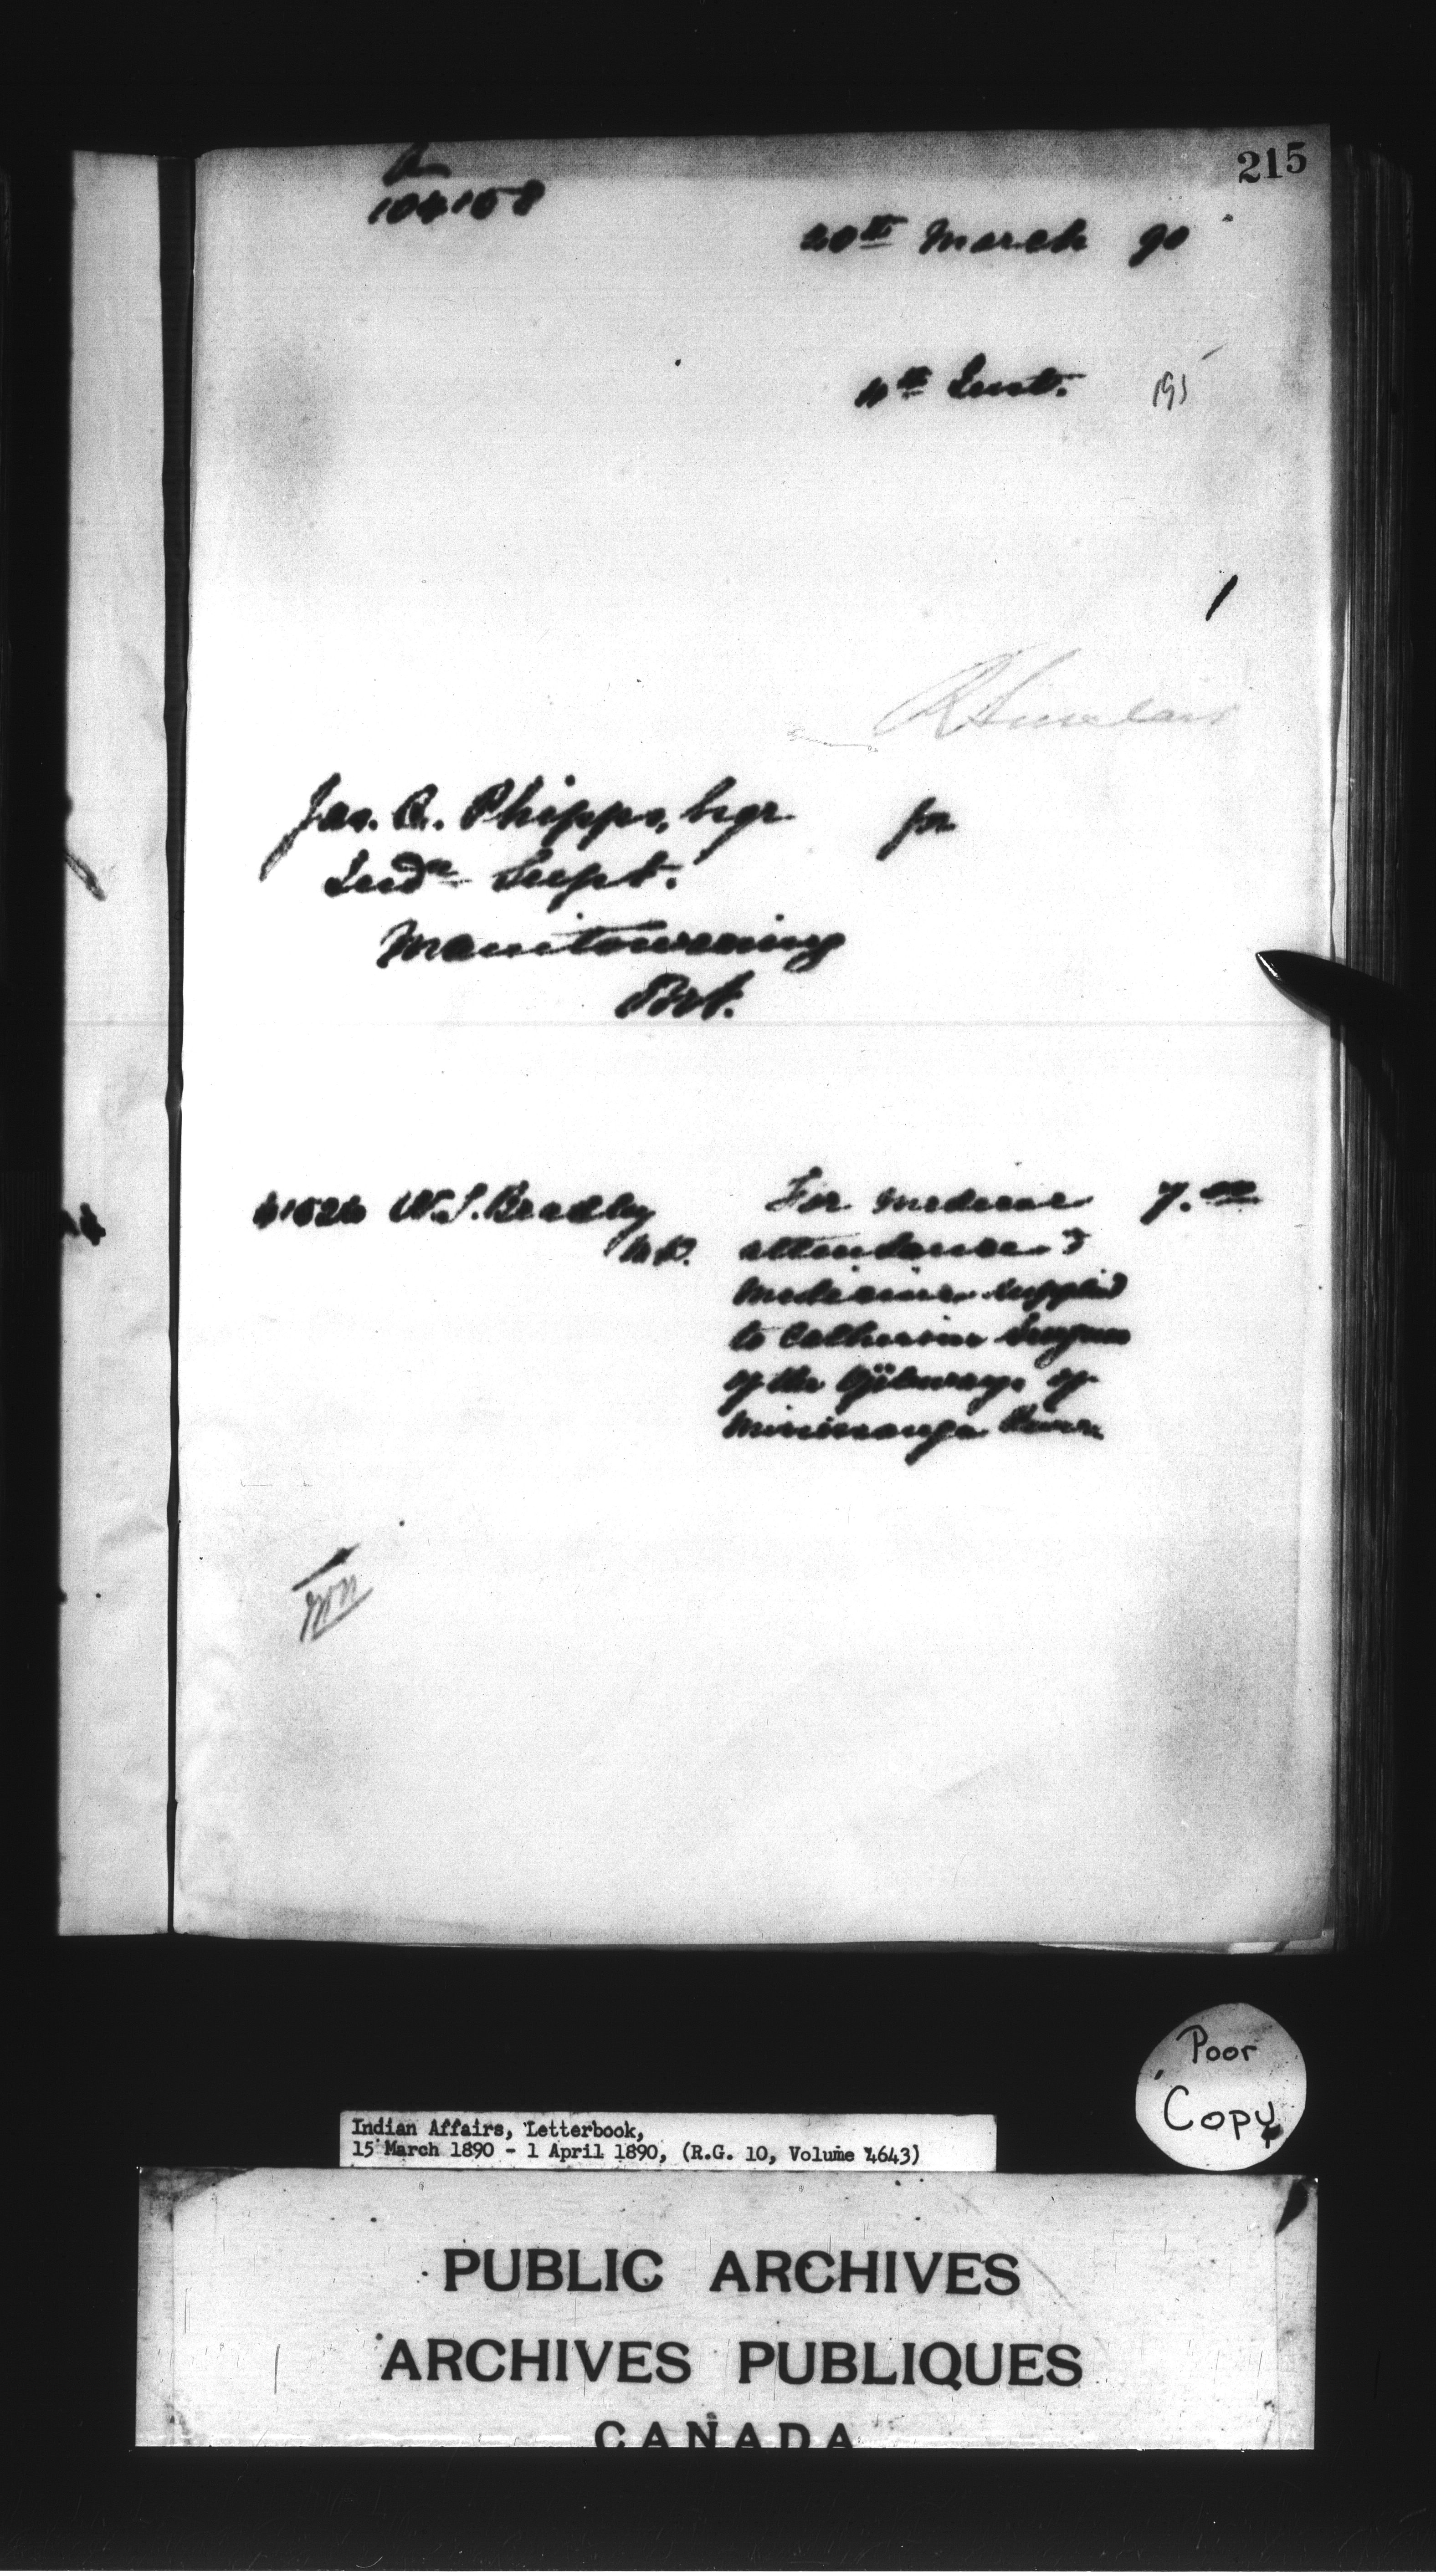 215
104108
20th March 90
4th Inst. 195
R Sinclair
Jas. C. Phipps, Esqr. for
Indn Supt.
Manitowaning
Ont.
W. S. Bradley For medical 7.00
M.D. attendance &
medicine supplied
to Catherine
of the Ojibways of
Mississauga River
Poor
Copy
Indian Affairs, Letterbook,
15 March 1890 - 1 April 1890, (R.G. 10, Volume 4643)
PUBLIC ARCHIVES
ARCHIVES PUBLIQUES
CANADA